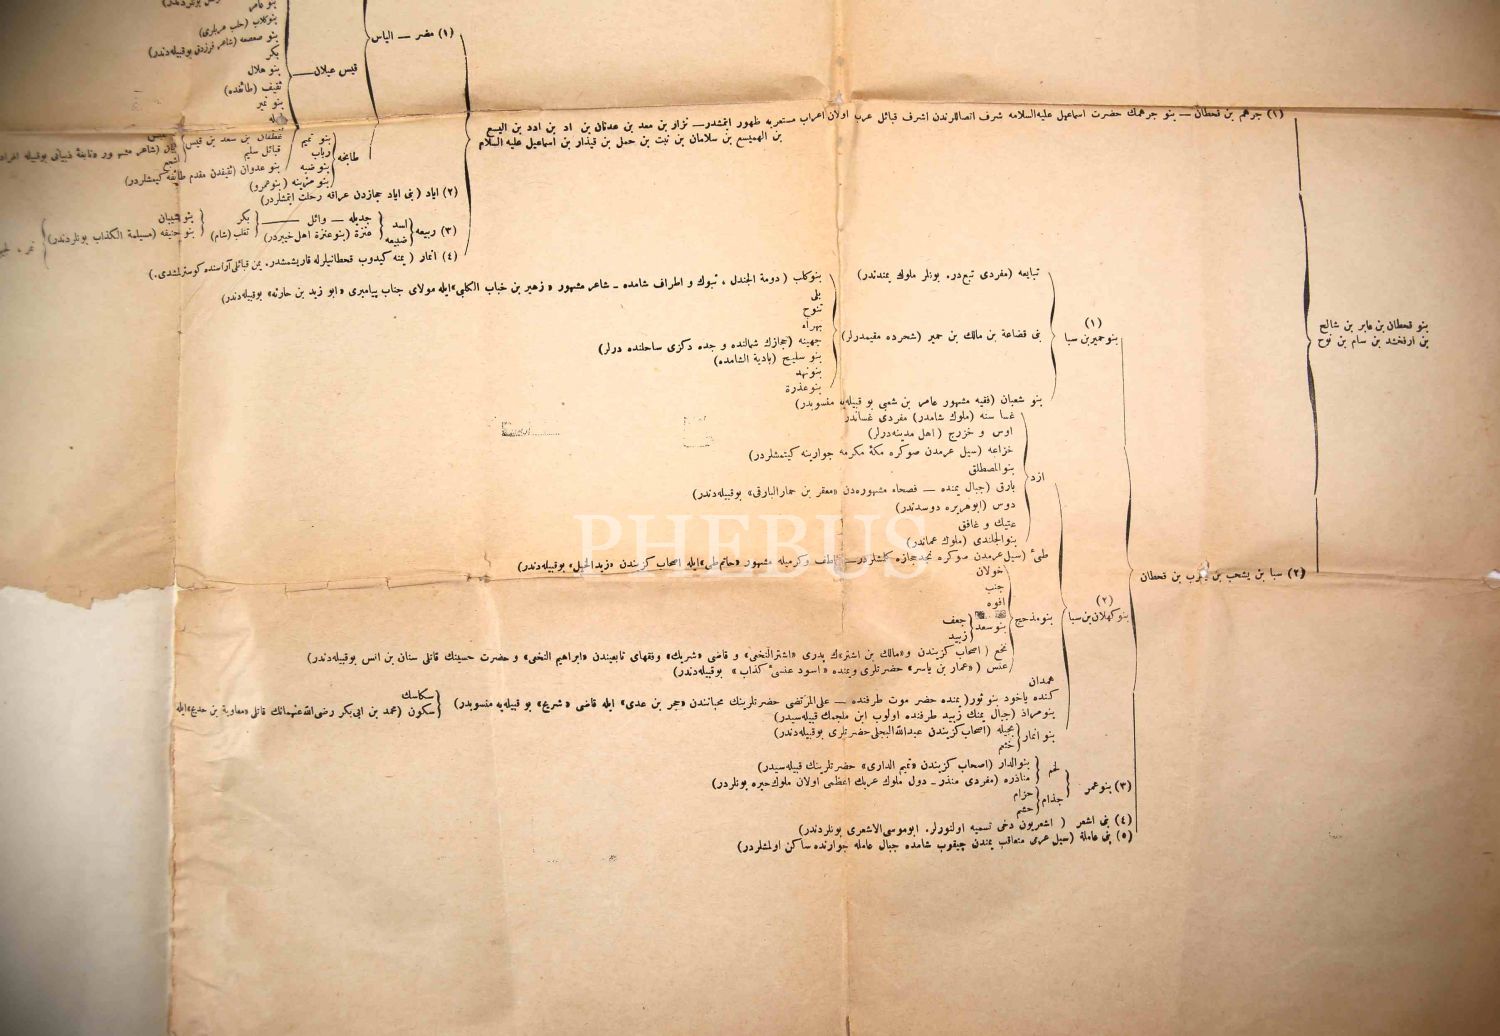 بنو عامر
بنو كلاب (حلب عربلری)
بنو صعصعه (شاعر فرزدق بوقبیله‌دندر)
بكر
بنو هلال
ثقیف (طائفده)
بنو نمیر
قیس عیلان
(١) مضر — الیاس
غطفان بن سعد بن قیس
قبائل سلیم
بنو عدوان (ثقیفدن مقدم طائفه كیمشلردر)
اشجع
بنو تمیم
رباب
بنو ضبه
بنو مزینه (بنو عمرو)
طابخه
(٢) ایاد (بنی ایاد حجازدن عراقه رحلت ایتمشلردر)
(٣) ربیعه
اسد
ضبیعه
جدیله — وائل
عنزة (بنو عنزة اهل خیبردر)
بكر
تغلب (شام)
بنو شیبان
بنو حنیفه (مسیلمة الكذاب بونلردندر)
(٤) انمار (یمنه كیدوب قحطانیلرله قاریشمشدر. یمن قبائلی آراسنده كوسترلمشدی.)
(١) جرهم بن قحطان — بنو جرهمك حضرت اسماعیل علیه‌السلامه شرف اتصاللرندن اشرف قبائل عرب اولان اعراب مستعربه ظهور ایتمشدر — نزار بن معد بن عدنان بن اد بن ادد بن الیسع
بن الهمیسع بن سلامان بن نبت بن حمل بن قیذار بن اسماعیل علیه السلام
بنو قحطان بن عابر بن شالح
بن ارفخشد بن سام بن نوح
(١)
بنو حمیر بن سبا
تبابعه (مفردی تبع‌در. بونلر ملوك یمندندر)
بنی قضاعة بن مالك بن حمیر (شحرده مقیمدرلر)
بنو كلب (دومة الجندل ، تبوك و اطراف شامده — شاعر مشهور «زهیر بن خباب الكلبی» ایله مولای جناب پیامبری «ابو زید بن حارثه» بوقبیله‌دندر)
بلی
تنوخ
بهراء
جهینه (حجازك شمالنده و جده دكزی ساحلنده درلر)
بنو سلیح (بادیة الشامده)
بنو نهد
بنو عذرة
بنو شعبان (فقیه مشهور عامر بن شعبی بو قبیله‌یه منسوبدر)
ازد
غسا سنه (ملوك شامدر) مفردی غساندر
اوس و خزرج (اهل مدینه‌درلر)
خزاعه (سیل عرمدن صوكره مكهٔ مكرمه جوارینه كیتمشلردر)
بنو المصطلق
بارق (جبال یمنده — فصحاء مشهوره‌دن «معقر بن حمار البارقی» بوقبیله‌دندر)
دوس (ابوهریره دوسدندر)
عتیك و غافق
بنو الجلندی (ملوك عماندر)
طیٔ (سیل عرمدن صوكره نجد حجازه كلمشلردر — لطف و كرمیله مشهور «حاتم طی» ایله اصحاب كزیندن «زید الخیل» بوقبیله‌دندر)
(٢) سبا بن یشجب بن یعرب بن قحطان
(٢)
بنو كهلان بن سبا
بنو مذحج
خولان
جنب
افوه
بنو سعد
جعف
زبید
نخع (اصحاب كزیندن و «مالك بن اشتر»ك پدری «اشتر النخعی» و قاضی «شریك» وفقهای تابعیندن «ابراهیم النخعی» و حضرت حسینك قاتلی سنان بن انس بوقبیله‌دندر)
عنس («عمار بن یاسر» حضرتلری ویمنده «اسود عنسیٔ كذاب» بوقبیله‌دندر)
همدان
كنده یاخود بنو ثور (یمنده حضر موت طرفنده — علی المرتضی حضرتلرینك محباتندن «حجر بن عدی» ایله قاضی «شریح» بو قبیله‌یه منسوبدر)
سكاسك
سكون (محمد بن ابی بكر رضی الله عنهمانك قاتلی «معاویة بن حدیج» ایله
بنو مراد (جبال یمنك زبید طرفنده اولوب ابن ملجمك قبیله‌سیدر)
بنو انمار
بجیله (اصحاب كزیندن عبدالله البجلی حضرتلری بوقبیله‌دندر)
خثعم
(٣) بنو عمر
لخم
بنو الدار (اصحاب كزیندن «تمیم الداری» حضرتلرینك قبیله‌سیدر)
مناذره (مفردی منذر — دول ملوك عربك اعظمی اولان ملوك حیره بونلردر)
جذام
حزام
حشم
(٤) بنی اشعر (اشعریون دخی تسمیه اولنورلر. ابو موسی الاشعری بونلردندر)
(٥) بنی عاملة (سیل عرمی متعاقب یمندن چیقوب شامده جبال عامله جوارنده ساكن اولمشلردر)
PHEBUS